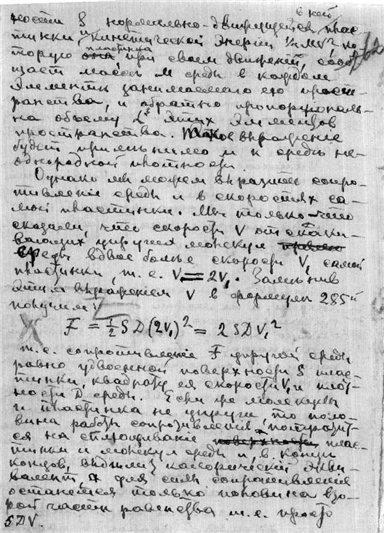 в ней
ности S нормально-движущейся плас-
тинки и кинетической энергии ½ мv² ко-
торую пластинка при своем движении, сооб-
щает массе М среды в каждом
элементе занимаемого ею прост-
ранства, и обратно пропорциональ-
на объему L³ этих элементов
пространства. Такое выражение
будет применимо и к среде не-
однородной плотности.
Однако мы можем выразить сопро-
тивление среды и в скоростях са-
мой пластинки. Мы только что
сказали, что скорость V отскаки-
вающих упругих молекул
среды вдвое больше скорости V₁ самой
пластинки, т.е. V = 2V₁. Заменив
этим выражением V в формуле 285"
получим
F = ½SD(2V₁)² = 2SDV₁²
т.е. сопротивление F упругой среды
равно удвоенной поверхности S плас-
тинки, квадрату ея скорости V₁ и плот-
ности D среды. Если же молекулы
и пластинка не упруги то поло-
вина работы сопротивления потратит-
ся на сплющивание плас-
тинки и молекул среды и, в конце
концов, калорический экви-
валент, а для силы сопротивления
останется только половина вто-
рой части равенства т.е. просто
SDV